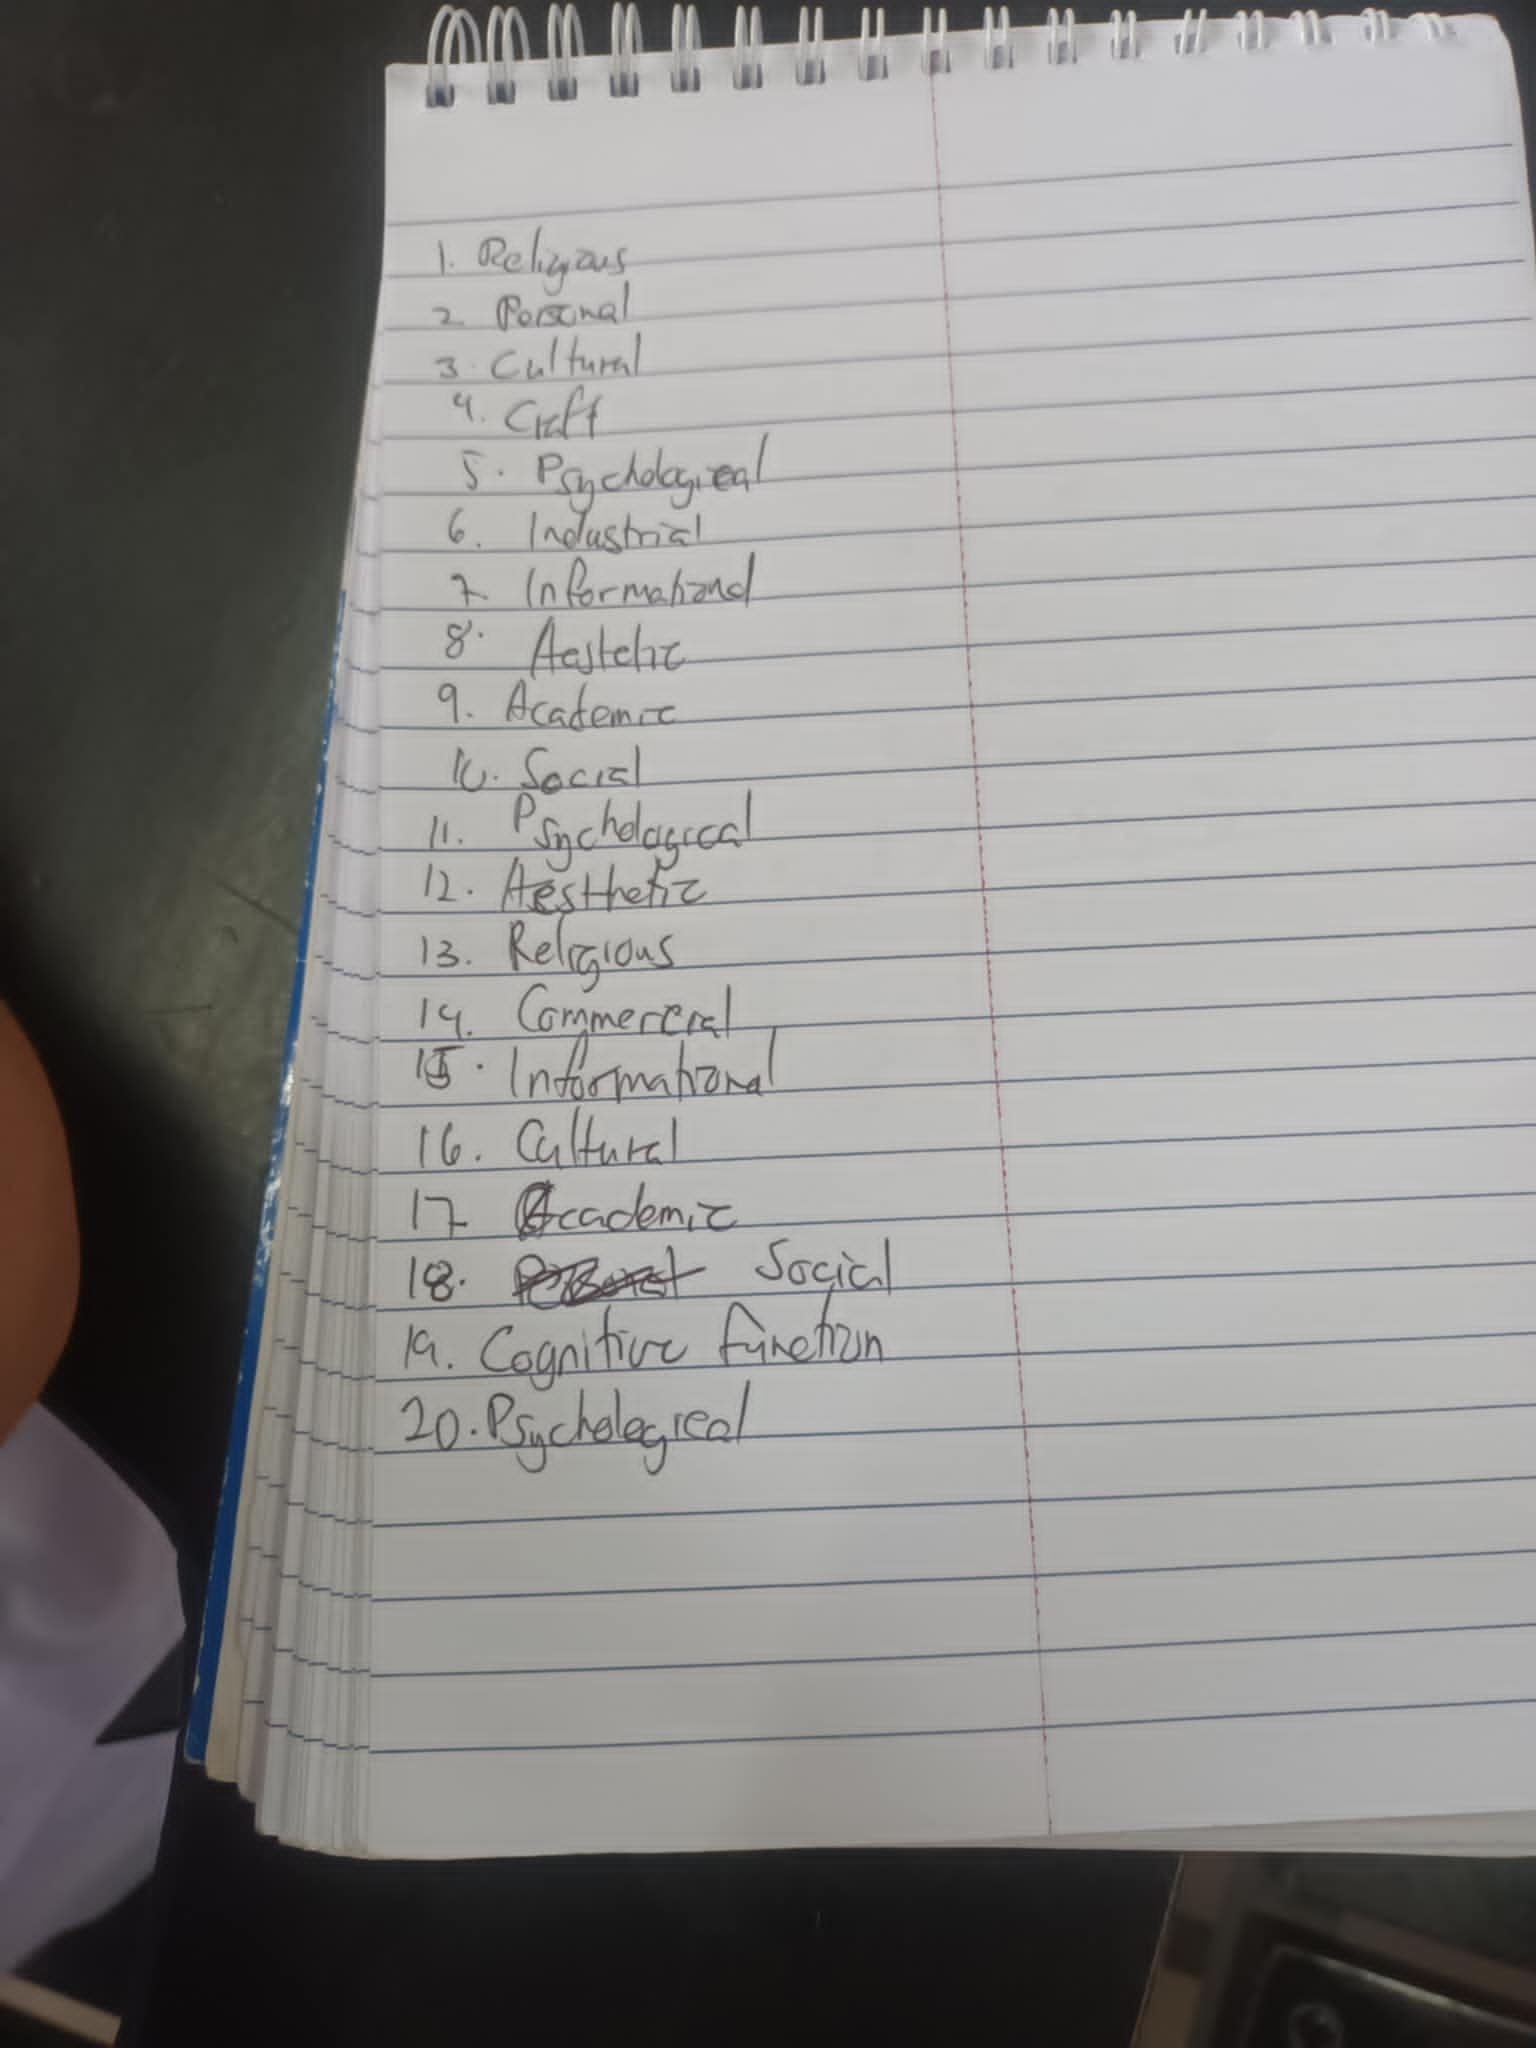 1. Religious
2. Personal
3. Cultural
4. Craft
5. Psychological
6. Industrial
7. Informational
8. Aestetic
9. Academic
10. Social
11. Psychological
12. Aesthetic
13. Religious
14. Commercial
15. Informational
16. Cultural
17. Academic
18. Social
19. Cognitive function
20. Psychological